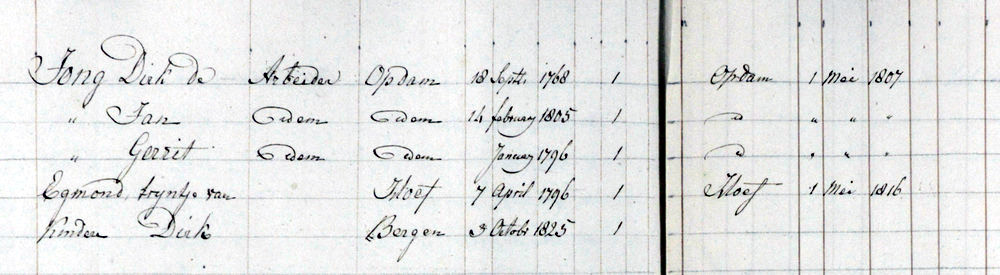 Jong Dirk de Arbeider Opdam 18 Septr 1768 1 Opdam 1 Mei 1807
" Jan Idem Idem 14 february 1805 1 " " " "
" Gerrit Idem Idem January 1796 1 " " " "
Egmond, tryntje van Hoef 7 April 1796 1 Hoef 1 Mei 1816
Kinder Dirk Bergen 3 Octobr 1825 1